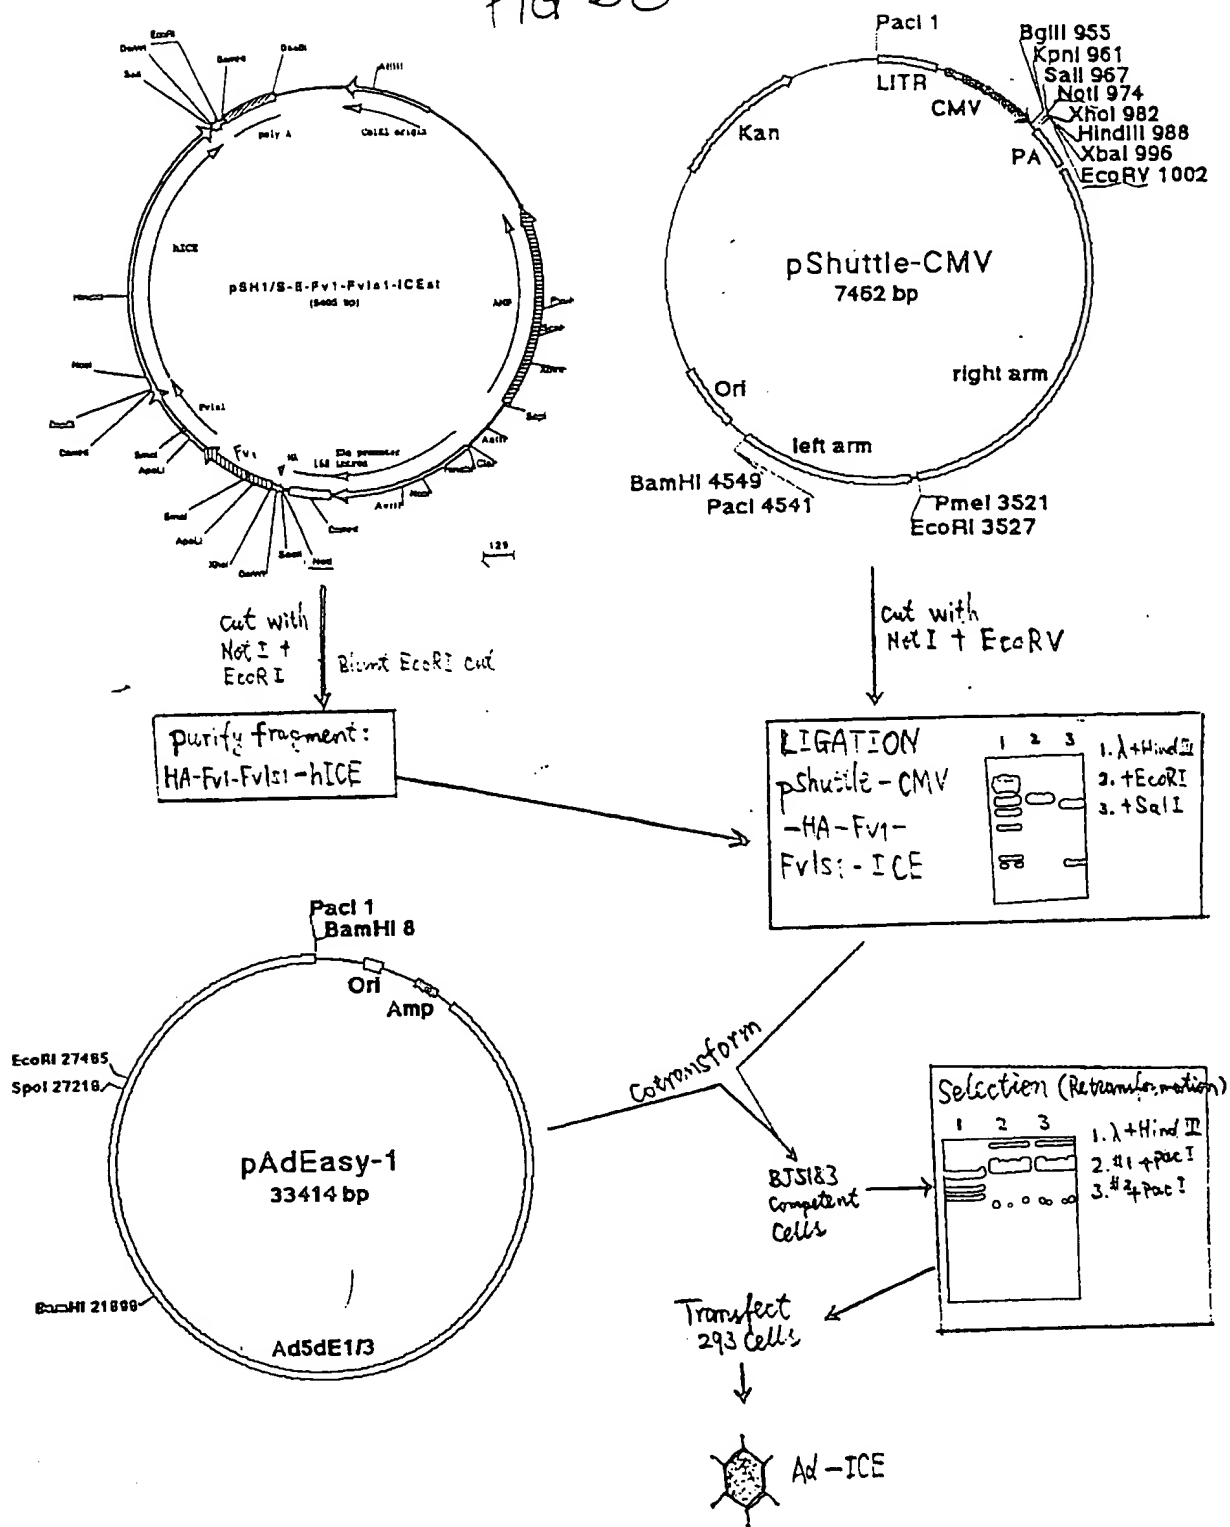 EcoRI
BamHI
SacI
AflIII
poly A
ColE1 origin
hICE
pSH1/S-E-Fv1-Fvls1-ICEst
AMP
Fvls1
Fv1
HA
SmaI
ApaLI
SmaI
ApaLI
XhoI
NotI
AvrII
AatII
129
PacI 1
LITR
CMV
BglII 955
KpnI 961
SalI 967
NotI 974
XhoI 982
HindIII 988
XbaI 996
EcoRV 1002
PA
Kan
pShuttle-CMV
7462 bp
right arm
Ori
left arm
BamHI 4549
PacI 4541
PmeI 3521
EcoRI 3527
cut with
NotI +
EcoRI
Blunt EcoRI cut
cut with
NotI + EcoRV
purify fragment:
HA-Fv1-Fvls1-hICE
LIGATION
pShuttle-CMV
-HA-Fv1-
Fvls1-ICE
1 2 3
1. λ+Hind III
2. +EcoRI
3. +SalI
PacI 1
BamHI 8
Ori
Amp
EcoRI 27485
SpoI 27218
pAdEasy-1
33414 bp
BamHI 21699
Ad5dE1/3
Cotransform
BJ5183
Competent
Cells
Selection (Retransformation)
1 2 3
1. λ+Hind III
2. #1+Pac I
3. #2+Pac I
Transfect
293 Cells
Ad-ICE